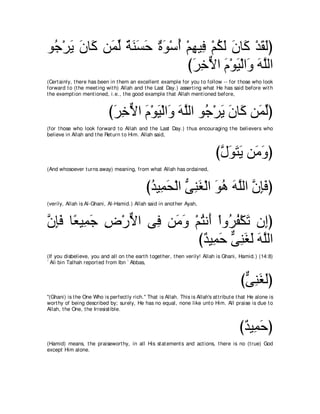 ﴿لَقَدْ كَانَ لَكُمْ فِيهِمْ أُسْوَةٌ حَسَنَةٌ لِّمَن كَانَ يَرْجُو
اللَّهَ وَالْيَوْمَ الاٌّخِرَ﴾
(Certainly, there has been in them an excellent example for you to follow -- for those who look
forward to (the meeting with) Allah and the Last Day.) asserting what He has said before with
the exemption mentioned, i.e., the good example that Allah mentioned before,
﴿لِّمَن كَانَ يَرْجُو اللَّهَ وَالْيَوْمَ الاٌّخِرَ﴾
(for those who look forward to Allah and the Last Day.) thus encouraging the believers who
believe in Allah and the Return to Him. Allah said,
﴿وَمَن يَتَوَلَّ﴾
(And whosoever turns away) meaning, from what Allah has ordained,
﴿فَإِنَّ اللَّهَ هُوَ الْغَنِىُّ الْحَمِيدُ﴾
(verily, Allah is Al-Ghani, Al-Hamid.) Allah said in another Ayah,
﴿إِن تَكْفُرُواْ أَنتُمْ وَمَن فِى الاٌّرْضِ جَمِيعًا فَإِنَّ
اللَّهَ لَغَنِىٌّ حَمِيدٌ﴾
(If you disbelieve, you and all on the earth together, then verily! Allah is Ghani, Hamid.) (14:8)
`Ali bin Talhah reported from Ibn `Abbas,
﴿لَغَنِىٌّ﴾
"(Ghani) is the One Who is perfectly rich." That is Allah. This is Allah's attribute that He alone is
worthy of being described by; surely, He has no equal, none like unto Him. All praise is due to
Allah, the One, the Irresistible.
﴿حَمِيدٌ﴾
(Hamid) means, the praiseworthy, in all His statements and actions, there is no (true) God
except Him alone.